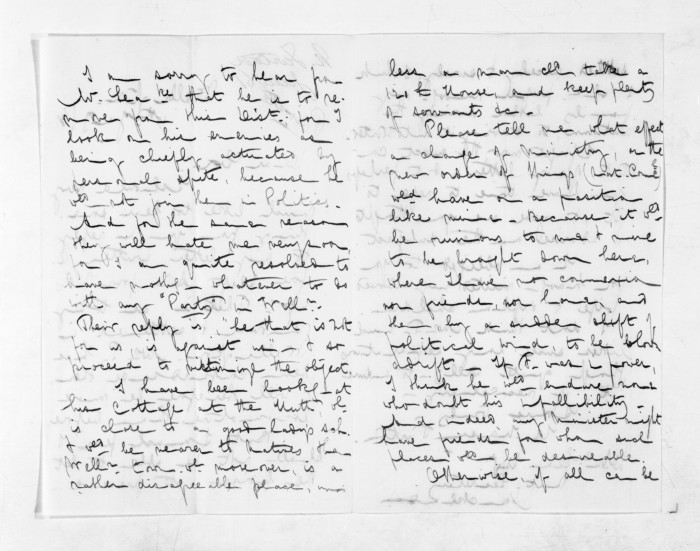 I am sorry to hear fm
Mr. that he is to re-
move from this Dist: for I
look on his enemies as
being chiefly actuated by
personal spite, because he
wd. not join them in Politics.
And for the same reason
they will hate me very soon,
for I am quite resolved to
have nothg. whatever to do
with any "Party" in Welln.
Their reply is, "he that is not
for us is against us" - & so
proceed to the object.
I have been lookg. at
his Cottage at the Hutt wh.
is close to a good ladys sch.
& wd. be nearer to Natives than
Welln. town wh. moreover, is a
rather disagreeable place,
less a man can take a
House, and keep plenty
of servants &c.
Please tell me what effect
a change of Ministry, or the
new order of things
wd. have on a position
like mine. Because, it wd.
be ruinous to me & mine
to be brought down here,
where I have no connexion
nor friends, nor home and
then by a sudden shift of
political wind, to be blown
adrift. If F. was in power,
I think he wd. endure none
who doubt his infallibility.
And indeed, any Minister might
have friends for whom such
places wd. be desireable.
Otherwise, if all can be